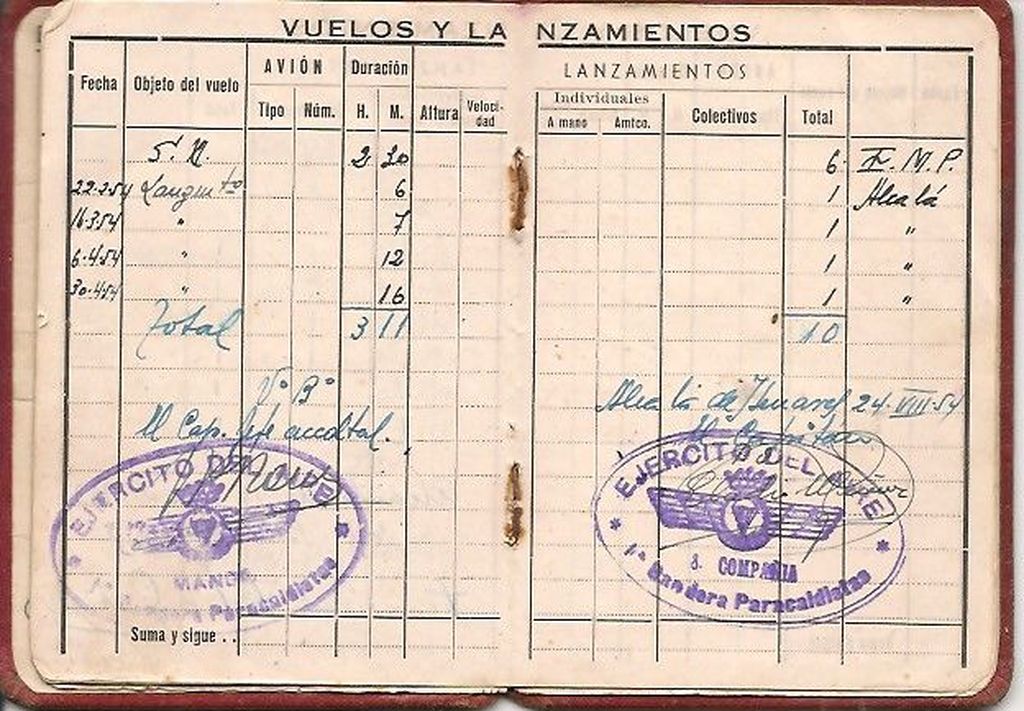 VUELOS Y LANZAMIENTOS
Fecha Objeto del vuelo AVIÓN Duración LANZAMIENTOS
Tipo Núm. H. M. Altura Veloci-dad Individuales Colectivos Total
A mano Amtco.
S. N. 2 30 6 E. M. P.
22-2-54 Lanzmto 6 1 Alcalá
16-3-54 " 7 1 "
6-4-54 " 12 1 "
30-4-54 " 16 1 "
Total 3 11 10
Vº Bº
El Cap. Jefe accdtal.
Alcalá de Henares 24-VIII-54
El Capitán
EJERCITO DEL AIRE
MANDO
1ª Bandera Paracaidistas
EJERCITO DEL AIRE
COMPAÑIA
1ª Bandera Paracaidistas
Suma y sigue . .